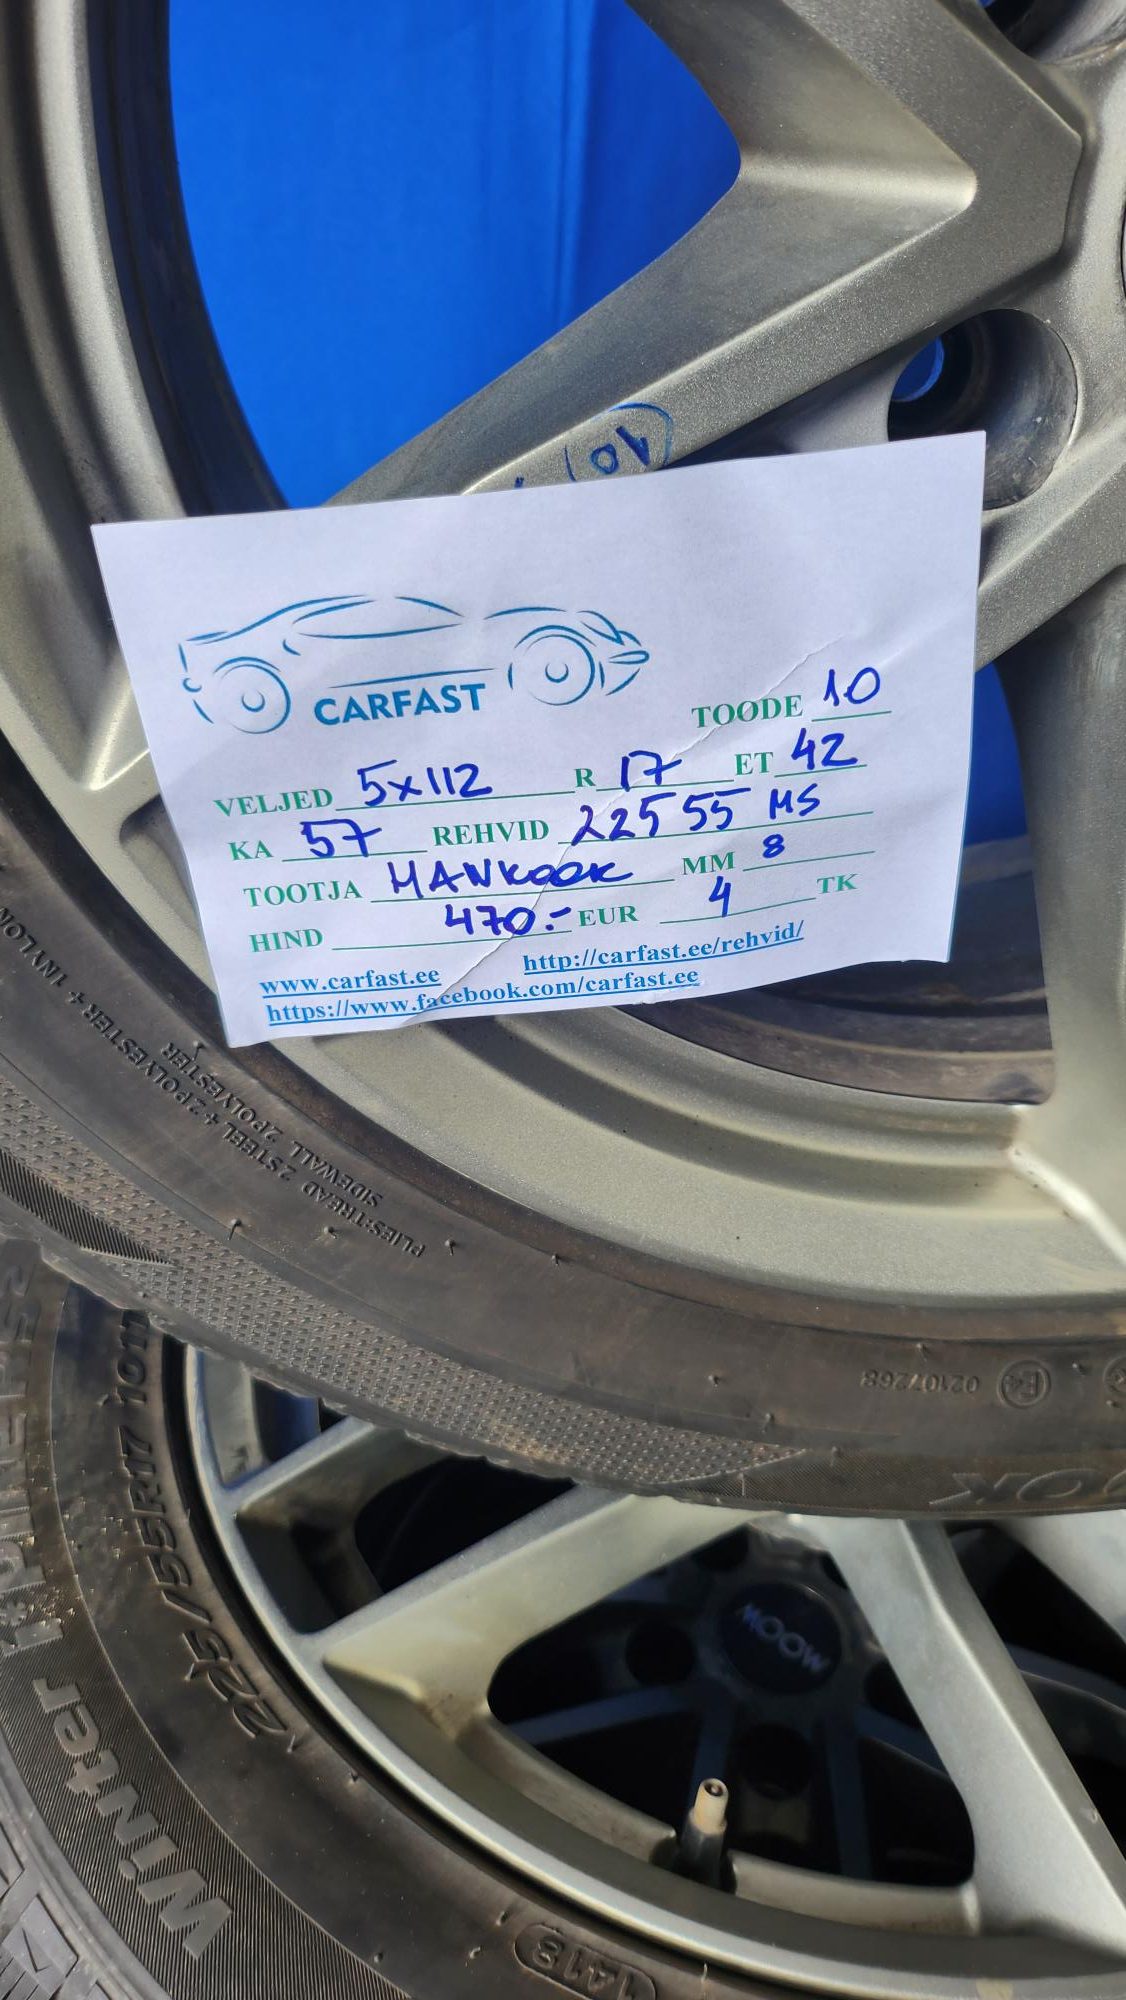 10
CARFAST
TOODE 10
VELJED 5x112 R 17 ET 42
KA 57 REHVID 225 55 MS
TOOTJA HANKOOK MM 8
HIND 470.- EUR 4 TK
www.carfast.ee http://carfast.ee/rehvid/
https://www.facebook.com/carfast.ee
PLIES:TREAD 2STEEL + 2POLYESTER + 1NYLON
SIDEWALL 2POLYESTER
02107268 E4
OK
225/55R17 101
Winter i*cept RS2
MOOW
1418